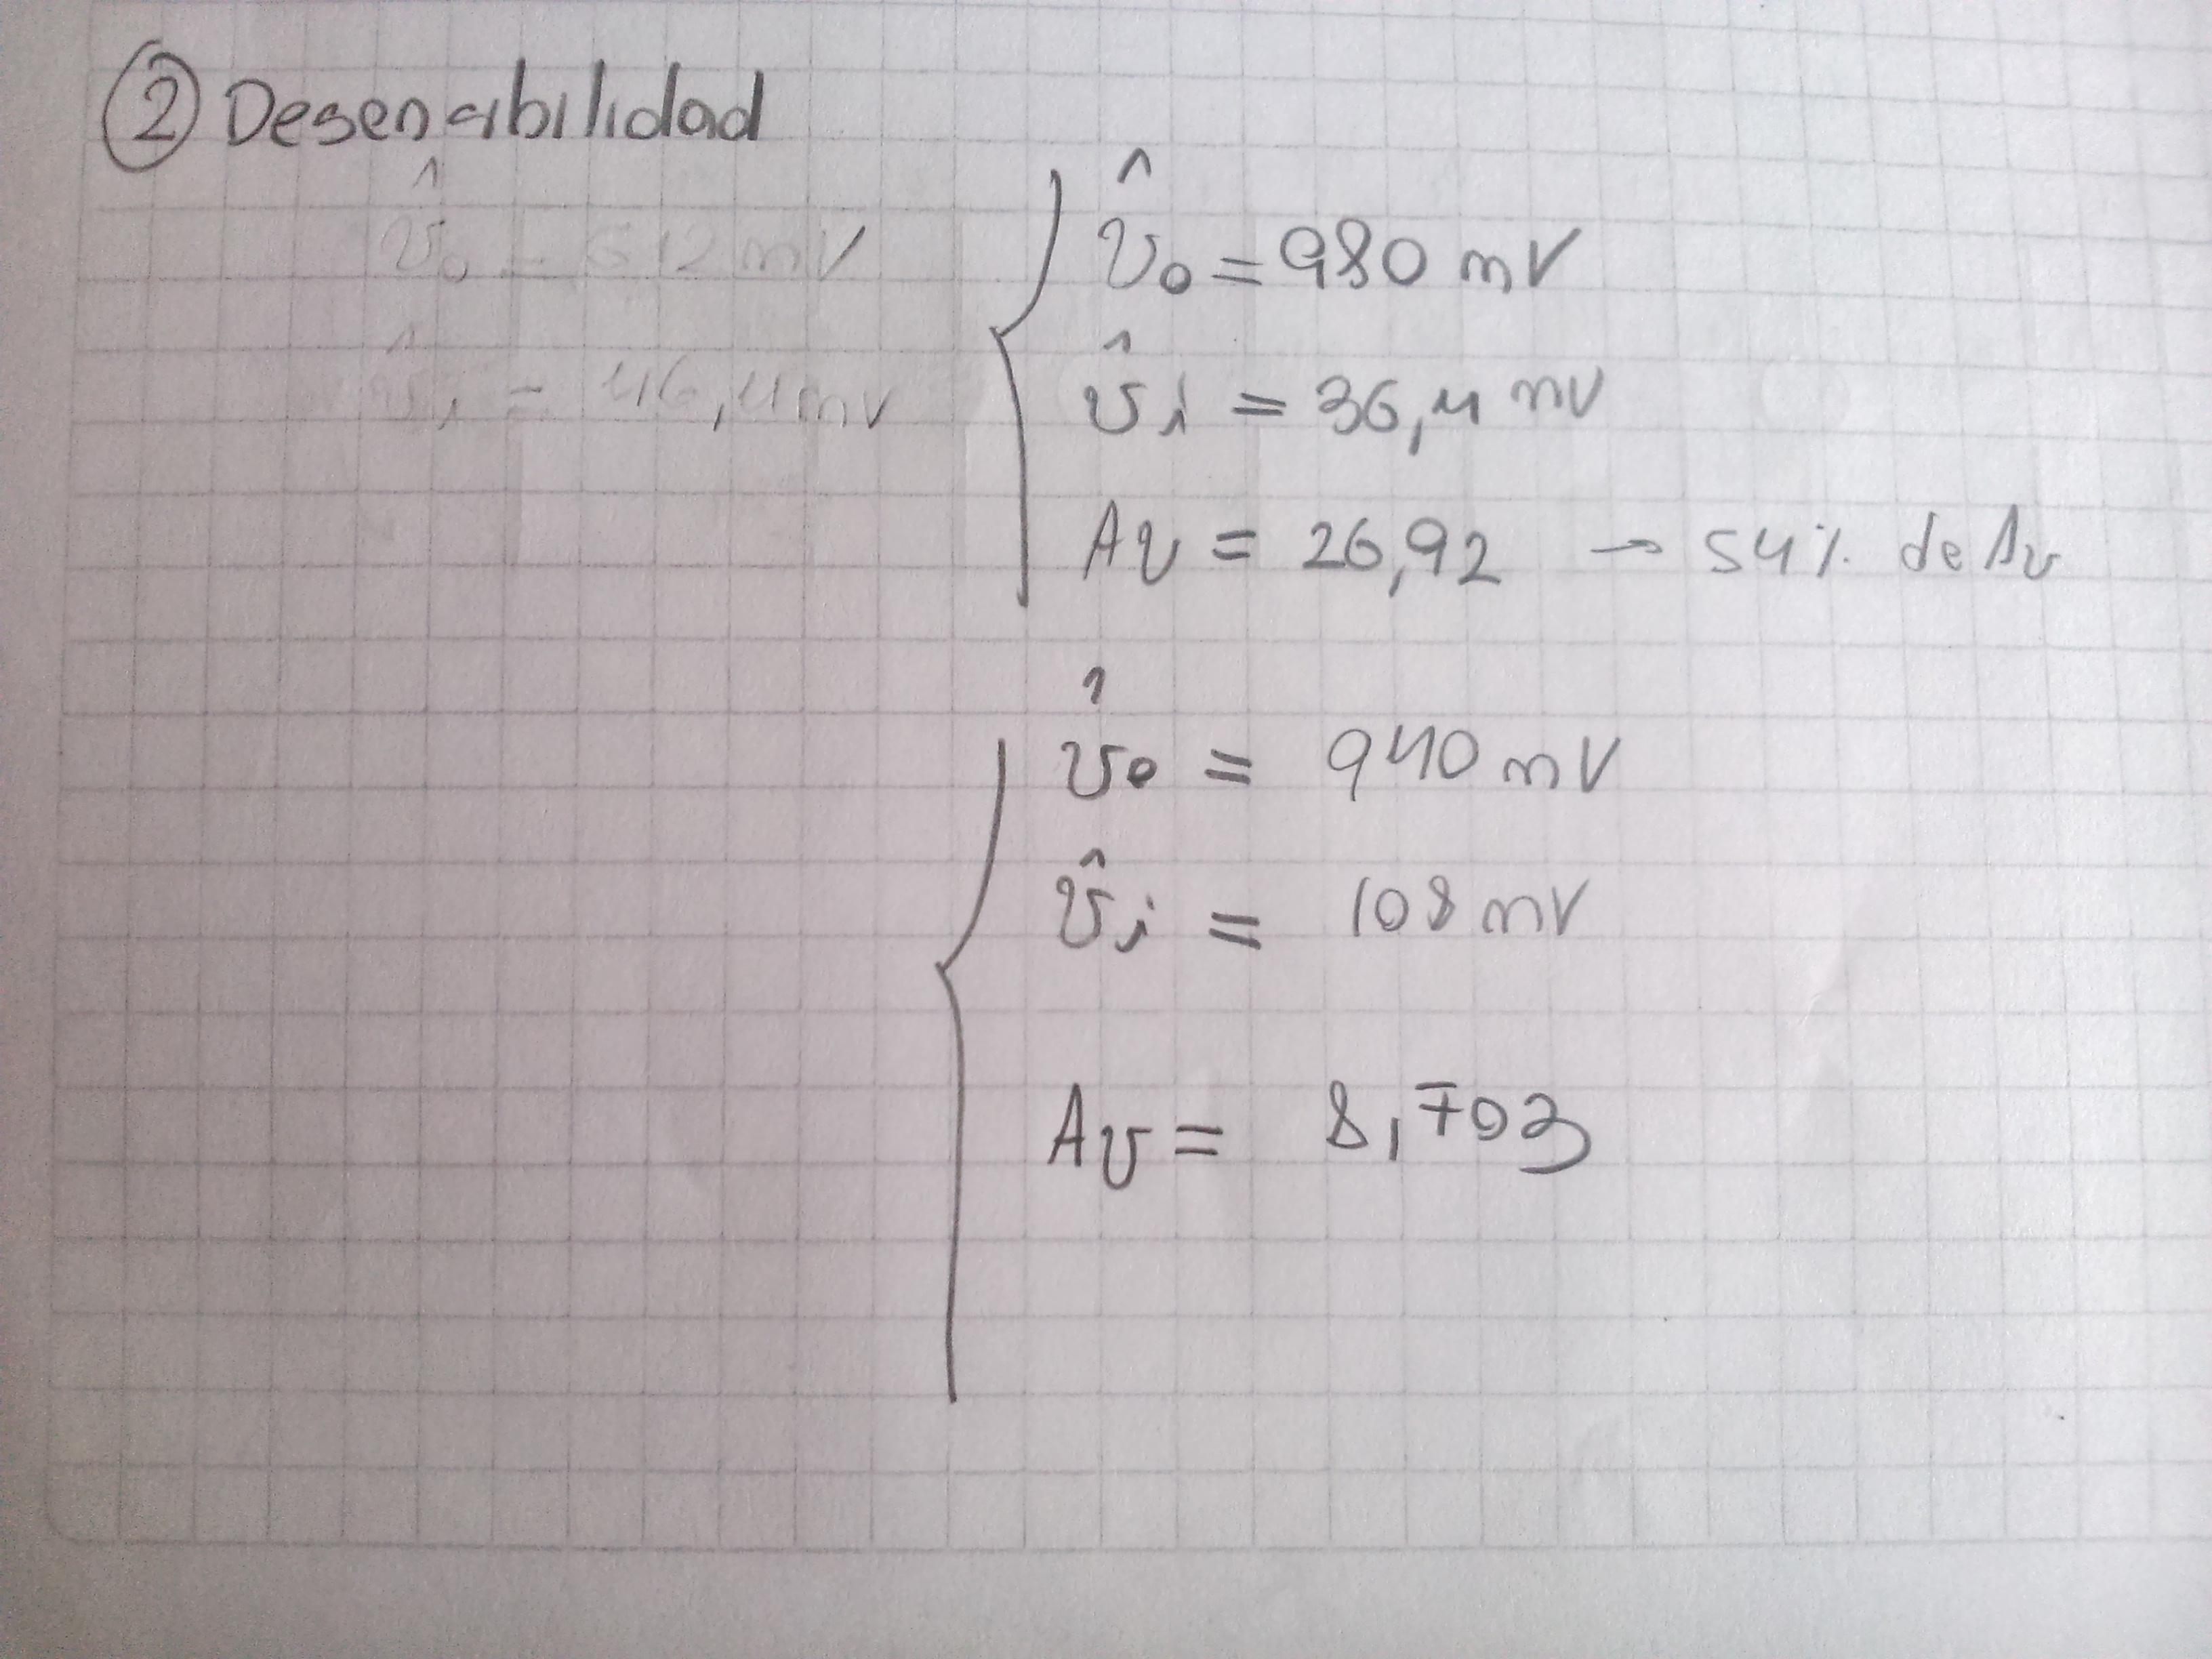 ② Desensibilidad
v̂o = 612 mV
v̂i = 46,4 mV
v̂o = 980 mV
v̂i = 36,4 mV
Av = 26,92 → 54% de Av
v̂o = 940 mV
v̂i = 108 mV
Av = 8,703